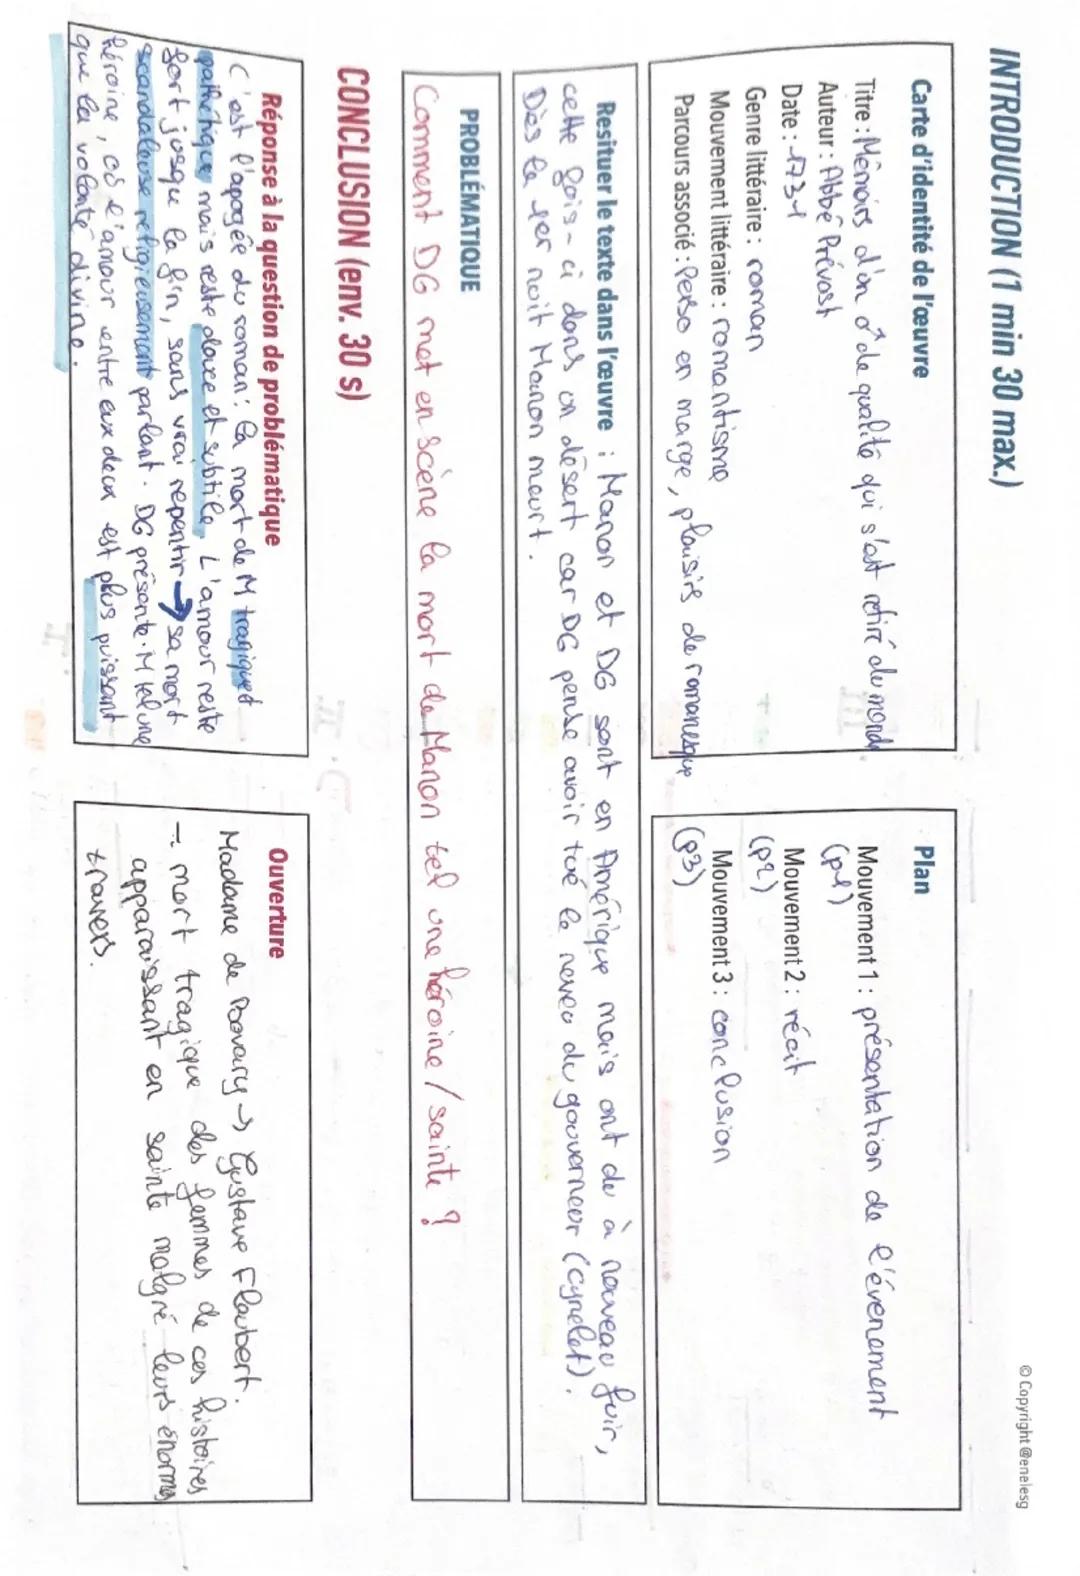 © Copyright @enelesg
INTRODUCTION (1 min 30 max.)
Carte d'identité de l'œuvre
Titre : Mémoirs d'un ♂ de qualité qui s'est retiré du monde
Auteur : Abbé Prévost
Date : 1731
Genre littéraire : roman
Mouvement littéraire : romantisme
Parcours associé : Perso en marge, plaisirs du romanesque
Plan
Mouvement 1 : présentation de l'évenement
(p1)
Mouvement 2 : récit
(p2)
Mouvement 3 : conclusion
(p3)
Resituer le texte dans l'œuvre : Manon et DG sont en Amérique mais ont du à nouveau fuir,
cette fois-ci dans un désert car DG pense avoir tué le neveu du gouverneur (cynelet).
Dès la 1er nuit Manon meurt.
PROBLÉMATIQUE
Comment DG met en scène la mort de Manon tel une héroine / sainte ?
CONCLUSION (env. 30 s)
Réponse à la question de problématique
C'est l'apogée du roman : la mort de M tragique et
pathétique mais reste douce et subtile. L'amour reste
fort jusque la fin, sans vrai repentir → sa mort
scandaleuse religieusement parlant. DG présente M tel une
héroine, où l'amour entre eux deux est plus puissant
que la volonté divine.
Ouverture
Madame de Bovary → Gustave Flaubert.
→ mort tragique des femmes de ces histoires
apparaissant en sainte malgré leurs énormes
travers.